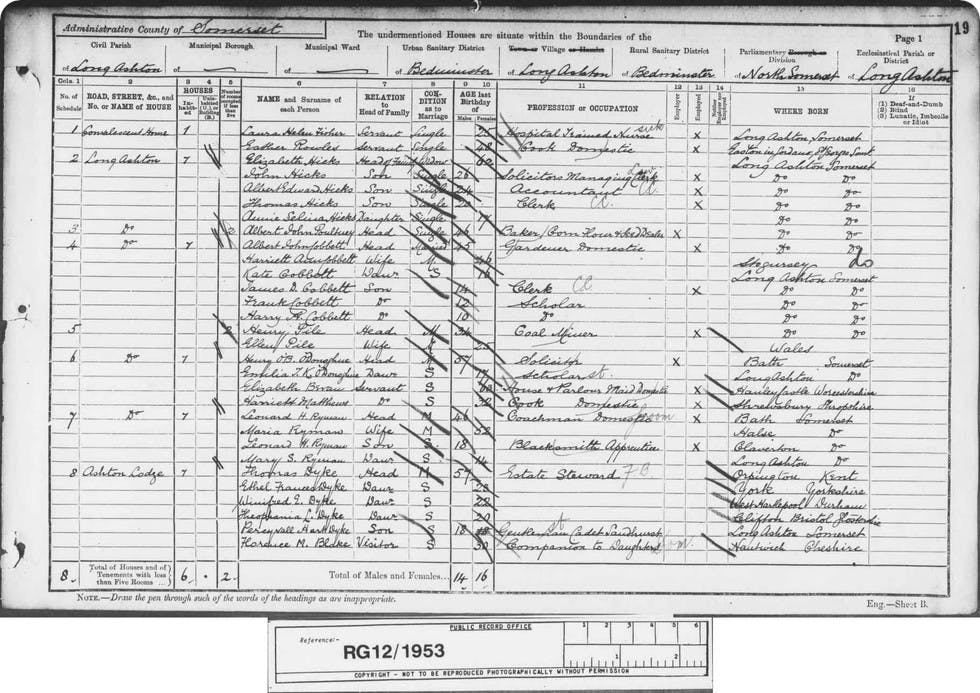 Administrative County of Somerset
The undermentioned Houses are situate within the Boundaries of the
Page 1
19
Civil Parish Municipal Borough Municipal Ward Urban Sanitary District Town or Village or Hamlet Rural Sanitary District Parliamentary Borough or Division Ecclesiastical Parish or District
of Long Ashton of — of — of Bedminster of Long Ashton of Bedminster of North Somerset of Long Ashton
Cols. 1 2 3 4 5 6 7 8 9 10 11 12 13 14 15 16
No. of Schedule ROAD, STREET, &c., and No. or NAME of HOUSE HOUSES Inhabited Uninhabited (U.), or Building (B.) Number of rooms occupied if less than five NAME and Surname of each Person RELATION to Head of Family CONDITION as to Marriage AGE last Birthday of Males Females PROFESSION or OCCUPATION Employer Employed Neither Employer nor Employed WHERE BORN If (1) Deaf-and-Dumb (2) Blind (3) Lunatic, Imbecile or Idiot
1 Convalescent Home 1 Laura Helen Fisher Servant Single Hospital Trained Nurse sick X Long Ashton, Somerset
Esther Rowles Servant Single 48 Cook Domestic X Easton in Gordano, St Georges Som't
2 Long Ashton 1 Elizabeth Hicks Head of Family Widow 62 Long Ashton Somerset
John Hicks Son Single 26 Solicitors Managing Clerk X Do Do
Albert Edward Hicks Son Single 24 Accountant Cl X Do Do
Thomas Hicks Son Single 20 Clerk Cl X Do Do
Annie Selina Hicks Daughter Single 17 Do Do
3 Do 2 Albert John Poultney Head Single Baker, Corn Flour & Seed Dealer X Do Do
4 Do 1 Albert John Cobbett Head Married 45 Gardener Domestic X Do Do
Harriett Cobbett Wife M 46 Stogursey do
Kate Cobbett Daur S 16 Long Ashton Somerset
James D. Cobbett Son 14 Clerk Cl X Do Do
Frank Cobbett Do 12 Scholar Do Do
Harry A. Cobbett Do 10 Do Do Do
5 2 Henry Pile Head M 34 Coal Miner X Do Do
Ellen Pile Wife M 25 Wales
6 Do 1 Henry O'B. O'Donoghue Head M 57 Solicitor X Bath Somerset
Emelia F. K. O'Donoghue Daur S 17 Scholar St. Long Ashton Do
Elizabeth Servant S House & Parlour Maid Domestic X Hanley Castle Worcestershire
Harriett Matthews Do S 32 Cook Domestic X Shrewsbury Shropshire
7 Do 1 Leonard H. Ryman Head M 46 Coachman Domestic X Bath Somerset
Maria Ryman Wife M 52 Halse Do
Leonard H. Ryman Son S 18 Blacksmith Apprentice X Claverton Do
Mary S. Ryman Daur S 14 Long Ashton Do
8 Ashton Lodge 1 Thomas Dyke Head M 57 Estate Steward Orpington Kent
Ethel Frances Dyke Daur S 23 York Yorkshire
Winifred G. Dyke Daur S 22 West Hartlepool Durham
Theophania L. Dyke Daur S 20 Clifton Bristol Glostershire
Percyvall Hart Dyke Son S 18 Gentleman Cadet Sandhurst Long Ashton Somerset
Florence M. Blake Visitor S 30 Companion to Daughters Nantwich Cheshire
8 Total of Houses and of Tenements with less than Five Rooms ... 6 . 2 Total of Males and Females... 14 16
NOTE.—Draw the pen through such of the words of the headings as are inappropriate.
Eng.—Sheet B.
PUBLIC RECORD OFFICE
Reference:-
RG12/1953
1 2 3 4 5 6
COPYRIGHT - NOT TO BE REPRODUCED PHOTOGRAPHICALLY WITHOUT PERMISSION